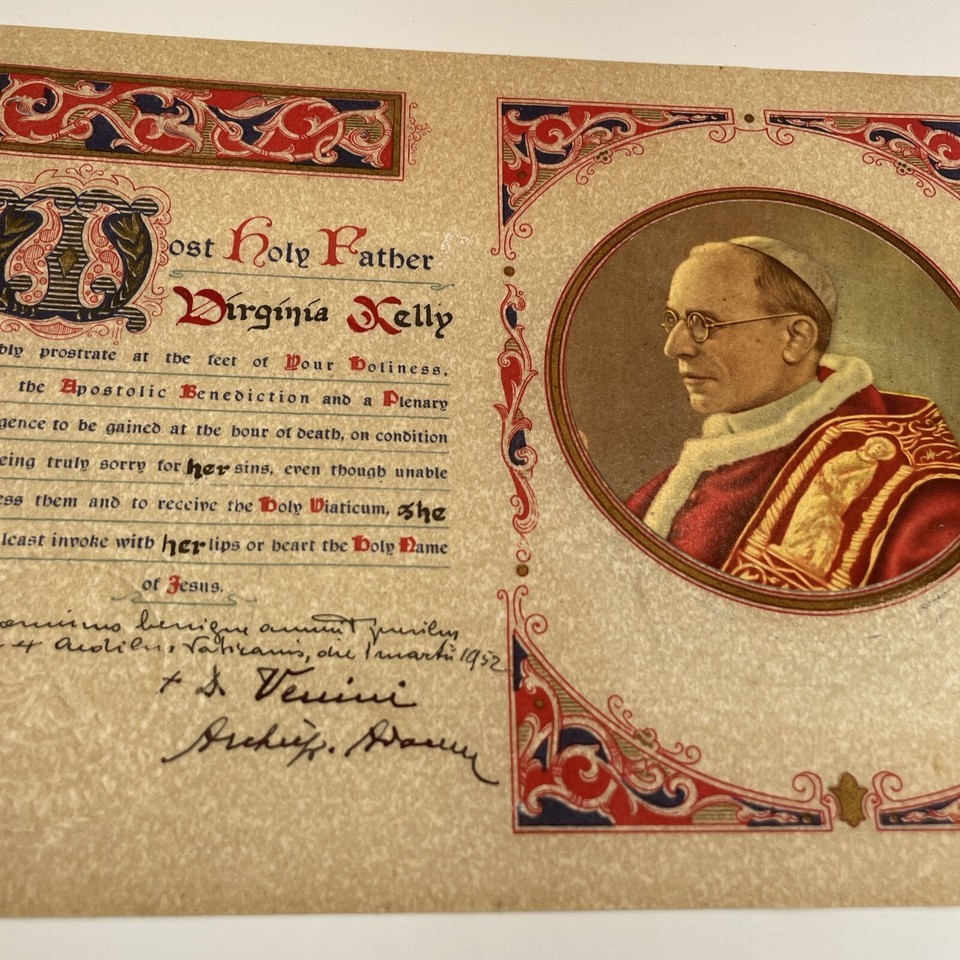 Most Holy Father
Virginia Kelly
bly prostrate at the feet of Your Holiness,
the Apostolic Benediction and a Plenary
gence to be gained at the hour of death, on condition
eing truly sorry for her sins, even though unable
ess them and to receive the Holy Viaticum, she
least invoke with her lips or heart the Holy Name
of Jesus.
benigne annuit precibus
Aedibus Vaticanis, die 1 martii 1952
+ D. Venini
Archiep. Adanen